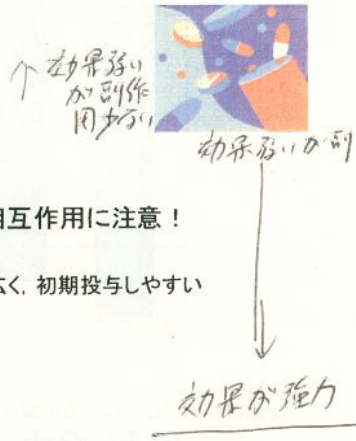 ↑ 効果弱い
が副作
用少ない
効果弱いが副
相互作用に注意！
広く，初期投与しやすい
効果が強力